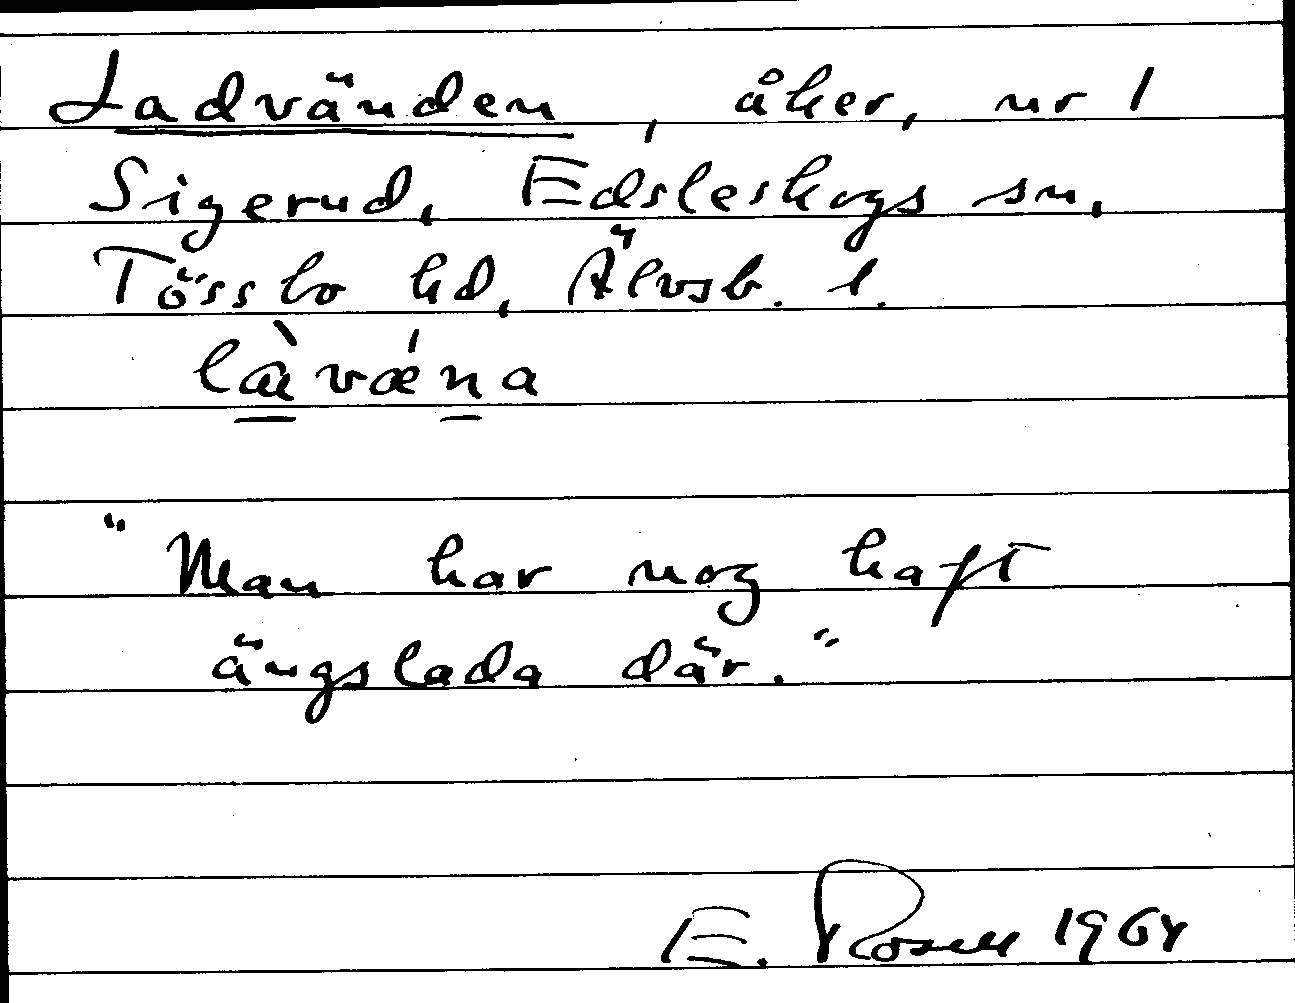 Ladvänden, åker, nr 1
Sigerud, Edsleskogs sn,
Tössbo hd, Älvsb. l.
là̱vǽṉa
"Man har nog haft
ängslada där."
E. Rosell 1964